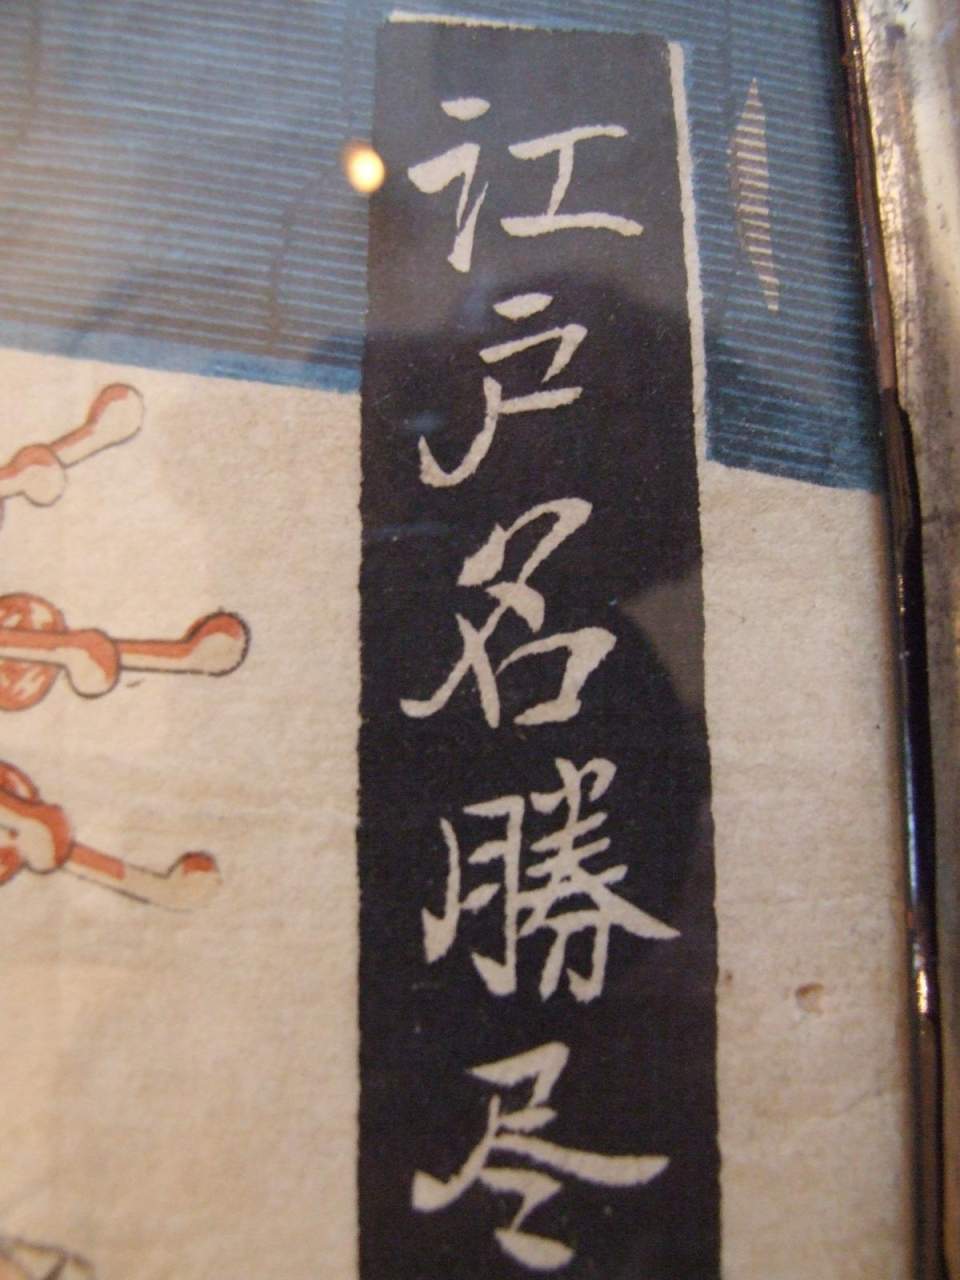 江戸名勝尽